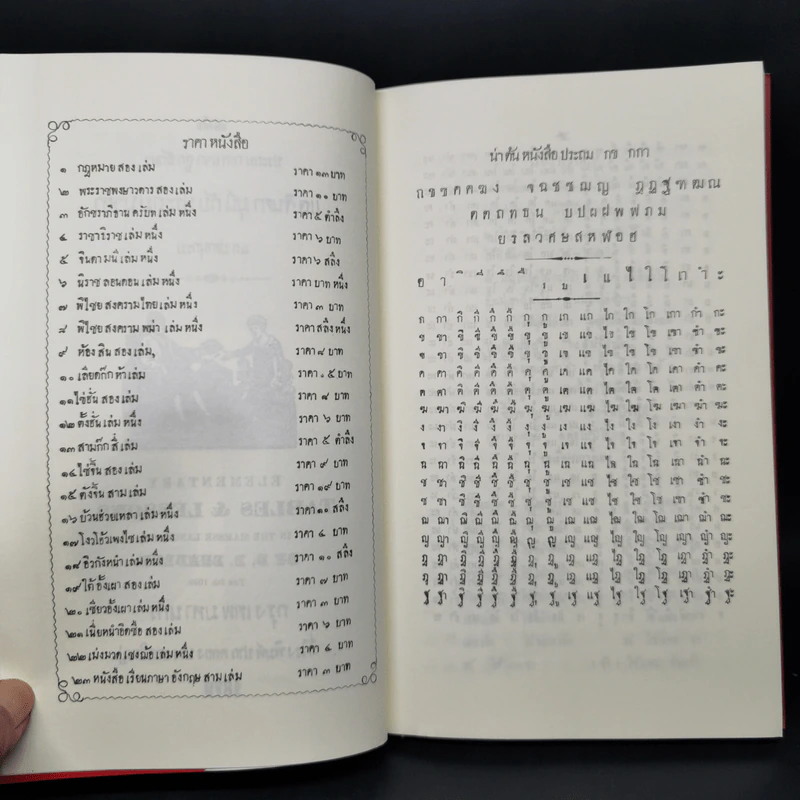 ราคา หนังสือ
๑ กฎหมาย สอง เล่ม ราคา ๑๓ บาท
๒ พระราชพงษาวดาร สอง เล่ม ราคา ๑๐ บาท
๓ อักขราภิธาน ศรับท เล่ม หนึ่ง ราคา ๕ ตำลึง
๔ ราชาธิราช เล่ม หนึ่ง ราคา ๖ บาท
๕ จินดา มนิ เล่ม หนึ่ง ราคา ๖ สลึง
๖ นิราช ลอนดอน เล่ม หนึ่ง ราคา บาท หนึ่ง
๗ พิไชย สงคราม ไทย เล่ม หนึ่ง ราคา ๓ บาท
๘ พิไชย สงคราม พม่า เล่ม หนึ่ง ราคา สลึง หนึ่ง
๙ ห้อง สิน สอง เล่ม, ราคา ๘ บาท
๑๐ เลียดก๊ก ห้า เล่ม ราคา ๑๕ บาท
๑๑ ไซ่ฮั่น สอง เล่ม ราคา ๘ บาท
๑๒ ตั้งฮั่น เล่ม หนึ่ง ราคา ๖ บาท
๑๓ สามก๊ก สี่ เล่ม ราคา ๕ ตำลึง
๑๔ ไซ่จิ้น สอง เล่ม ราคา ๙ บาท
๑๕ ตังจิ้น สาม เล่ม ราคา ๑๙ บาท
๑๖ บ้วนฮ่วยเหลา เล่ม หนึ่ง ราคา ๑๐ สลึง
๑๗ โงวโฮ้วเพงไซ เล่ม หนึ่ง ราคา ๔ บาท
๑๘ ฮิวกังหนำ เล่ม หนึ่ง ราคา ๑๐ สลึง
๑๙ ใต้ อั้งเผา สอง เล่ม ราคา ๗ บาท
๒๐ เซียวอั้งเผา เล่ม หนึ่ง ราคา ๓ บาท
๒๑ เนี่ยหนำอิดซื้อ สอง เล่ม ราคา ๖ บาท
๒๒ เม่งมวด เซงฌ้อ เล่ม หนึ่ง ราคา ๔ บาท
๒๓ หนังสือ เรียน ภาษา อังกฤษ สาม เล่ม ราคา ๓ บาท
น่า ต้น หนังสือ ประถม กข กกา
ก ข ฃ ค ฅ ฆ ง จ ฉ ช ซ ฌ ญ ฎ ฏ ฐ ฑ ฒ ณ
ด ต ถ ท ธ น บ ป ผ ฝ พ ฟ ภ ม
ย ร ล ว ศ ษ ส ห ฬ อ ฮ
อ า ิ ี ึ ื ุ ู เ แ ไ ใ โ เา ำ ะ
ก กา กิ กี กึ กื กุ กู เก แก ไก ใก โก เกา กำ กะ
ข ขา ขิ ขี ขึ ขื ขุ ขู เข แข ไข ใข โข เขา ขำ ขะ
ฃ ฃา ฃิ ฃี ฃึ ฃื ฃุ ฃู เฃ แฃ ไฃ ใฃ โฃ เฃา ฃำ ฃะ
ค คา คิ คี คึ คื คุ คู เค แค ไค ใค โค เคา คำ คะ
ฅ ฅา ฅิ ฅี ฅึ ฅื ฅุ ฅู เฅ แฅ ไฅ ใฅ โฅ เฅา ฅำ ฅะ
ฆ ฆา ฆิ ฆี ฆึ ฆื ฆุ ฆู เฆ แฆ ไฆ ใฆ โฆ เฆา ฆำ ฆะ
ง งา งิ งี งึ งื งุ งู เง แง ไง ใง โง เงา งำ งะ
ฉ ฉา ฉิ ฉี ฉึ ฉื ฉุ ฉู เฉ แฉ ไฉ ใฉ โฉ เฉา ฉำ ฉะ
ช ชา ชิ ชี ชึ ชื ชุ ชู เช แช ไช ใช โช เชา ชำ ชะ
ซ ซา ซิ ซี ซึ ซื ซุ ซู เซ แซ ไซ ใซ โซ เซา ซำ ซะ
ฌ ฌา ฌิ ฌี ฌึ ฌื ฌุ ฌู เฌ แฌ ไฌ ใฌ โฌ เฌา ฌำ ฌะ
ญ ญา ญิ ญี ญึ ญื ญุ ญู เญ แญ ไญ ใญ โญ เญา ญำ ญะ
ฎ ฎา ฎิ ฎี ฎึ ฎื ฎุ ฎู เฎ แฎ ไฎ ใฎ โฎ เฎา ฎำ ฎะ
ฏ ฏา ฏิ ฏี ฏึ ฏื ฏุ ฏู เฏ แฏ ไฏ ใฏ โฏ เฏา ฏำ ฏะ
ฐ ฐา ฐิ ฐี ฐึ ฐื ฐุ ฐู เฐ แฐ ไฐ ใฐ โฐ เฐา ฐำ ฐะ